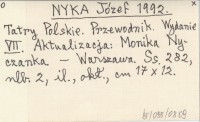 NYKA Józef 1992.
Tatry Polskie. Przewodnik. Wydanie
VII. Aktualizacja: Monika Ny-
czanka – Warszawa Ss. 282,
nlb. 2, il., okł., cm 17 x 12.